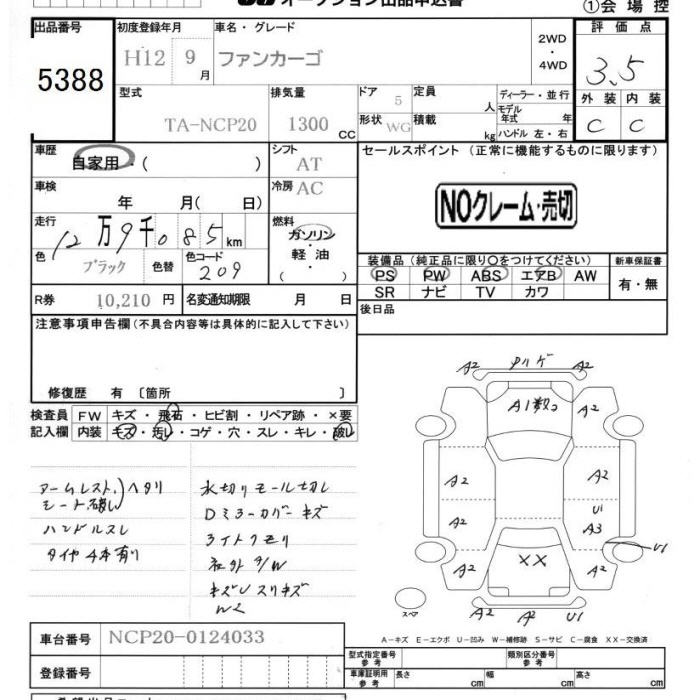 オークション出品申込書
①会場控
出品番号
5388
初度登録年月
H12 9月
車名・グレード
ファンカーゴ
2WD
・
4WD
評価点
3.5
外装 内装
C C
型式
TA-NCP20
排気量
1300 CC
ドア 5
形状 WG
定員 人
積載 kg
ディーラー・並行
モデル年式 年
ハンドル 左・右
車歴
自家用・( )
シフト AT
車検
年 月( 日)
冷房 AC
走行
12万9千085km
燃料
ガソリン・
軽油・
( )
色 ブラック 色替
色コード 209
R券 10,210 円
名変通知期限 月 日
セールスポイント (正常に機能するものに限ります)
NOクレーム・売切
装備品(純正品に限り〇をつけてください)
PS PW ABS エアB AW
SR ナビ TV カワ
新車保証書
有・無
後日品
注意事項申告欄(不具合内容等は具体的に記入して下さい)
修復歴 有〔箇所 〕
検査員記入欄
FW キズ・飛石・ヒビ割・リペア跡・×要
内装 キズ・汚レ・コゲ・穴・スレ・キレ・破レ
アームレスト ヘタリ
シート破レ
ハンドルスレ
タイヤ4本有り
水切りモール切レ
Dミラーカバーキズ
ライトクモリ
社外P/W
キズUスリキズ
W2
A2 メハゲ A2
A2 A1数コ A2
A2 A2
U1
A2 A3
U1
A2 XX A2
A2 A2 U1
スペア
A-キズ E-エクボ U-凹み W-補修跡 S-サビ C-腐食 XX-交換済
車台番号 NCP20-0124033
登録番号
型式指定番号 参考
類別区分番号 参考
車庫証明用 参考 長さ cm 幅 cm 高さ cm